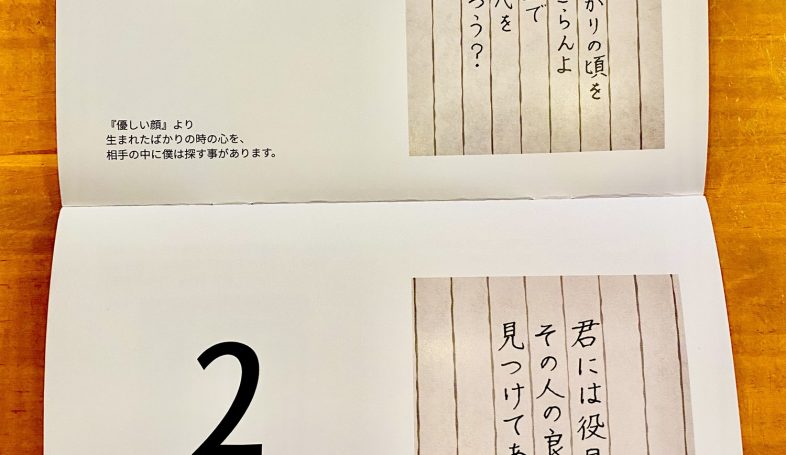 かりの頃を
らんよ
で
を
ろう？
『優しい顔』より
生まれたばかりの時の心を、
相手の中に僕は探す事があります。
2
君には役
その人の良
見つけてあ